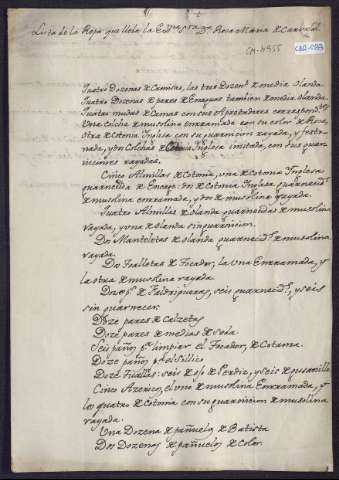 Lista de la Ropa que lleba la Exma Sra Da Rosa Maria de Carbajal.
CA-4955
Quatro Dozenas de Camisas, las tres Dozens de media olanda
Quatro Dozenas de pares de Enaguas tambien de media olanda
Quatro mudas de Camas con sus Apretadores correspondtes
Una colcha de muselina enramada con su color de Rosa,
otra de Cotonia Inglesa con su guarnicion rayada, y festo-
nada, y dos Colchas de Cotonia Inglesa imitada, con sus guar-
niciones rayadas.
Cinco Almillas de Cotonia, una de Cotonia Inglesa
guarnecida de Encage: dos de Cotonia Inglesa guarnecds
de muselina enramada, y dos de muselina rayada.
Quatro Almillas de olanda guarnecidas de muselina
rayada, y una de olanda sin guarnicion.
Dos Manteletas de olanda guarnecds de muselina
rayada.
Dos Toalletas de Tocador, la una Enramada, y
la otra de muselina rayada.
Doze ps de Faldriqueras, seis guarnecds, y seis
sin guarnecer.
Doze pares de Calzetas
Doze pares de medias de seda
Seis paños pa limpiar el Tocador, de Cotonia.
Doze paños pa
Doze Toallas: seis de y seis de gusanillo
Cinco Azericos, el uno de muselina Enramada, y
los quatro de Cotonia con su guarnicion de muselina
rayada.
Una Dozena de pañuelos de Batista
Dos Dozenas de pañuelos de color.